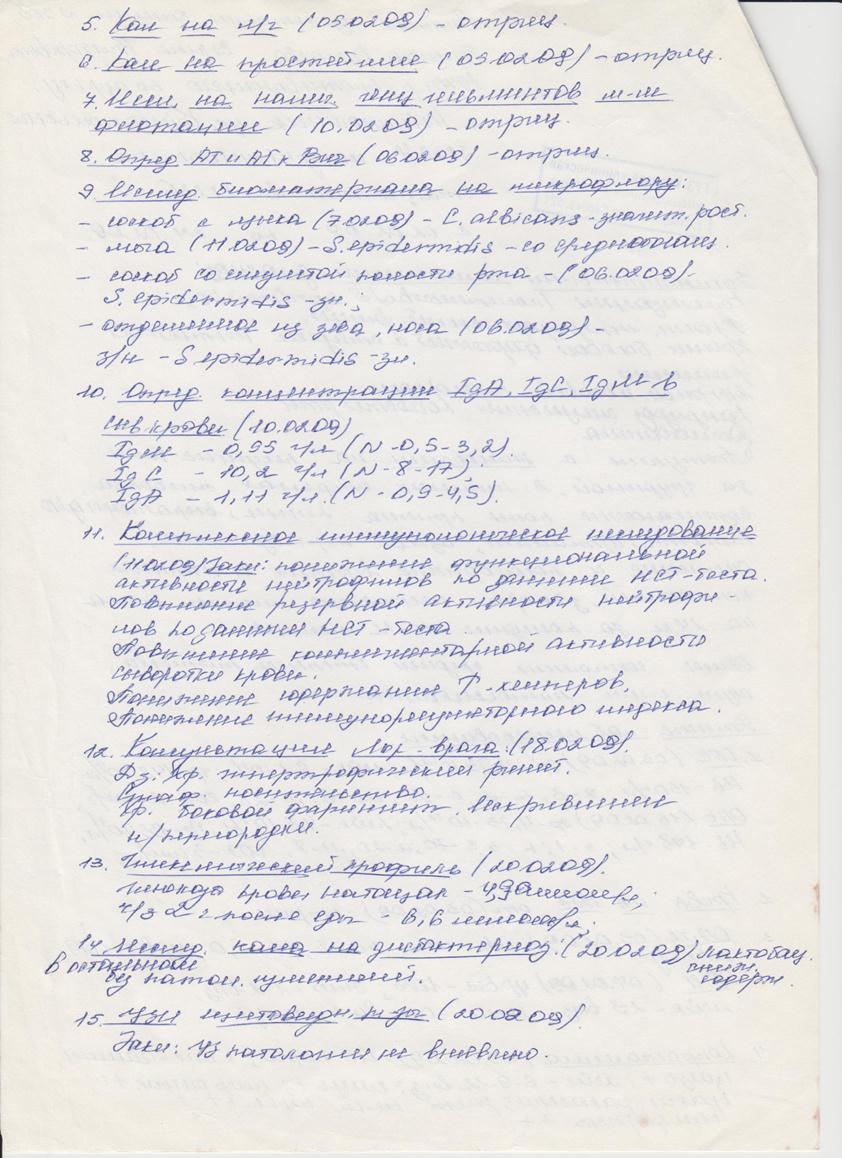 5. Кал на я/г (05.02.09) - отриц.
6. Кал на простейшие (05.02.09) - отриц.
7. Иссл. на налич. яиц гельминтов м-м
флотации (10.02.09) - отриц.
8. Опред АТ и АГ к Вич (06.02.09) - отриц.
9 Исслед. биоматериала на микрофлору:
- соскоб с языка (7.02.09) - C. albicans - значит. рост.
- моча (11.02.09) - S. epidermidis -
- соскоб со слизистой полости рта - (06.02.09) -
S. epidermidis - зн.;
- отделяемое из зева, носа (06.02.09) -
з/н - S. epidermidis - зн.
10. Опред. концентрации IgA, IgG, IgM в
сыв крови (10.02.09)
IgM - 0,95 г/л (N - 0,5 - 3,2).
IgG - 10,2 г/л (N - 8 - 17);
IgA - 1,11 г/л (N - 0,9 - 4,5).
11. Комплексное иммунологическое исследование
(11.02.09) Закл: понижение функциональной
активности нейтрофилов по данным НСТ-теста.
Повышение резервной активности нейтрофи-
лов по данным НСТ-теста
Повышение комплементарной активности
сыворотки крови.
Понижение содержания Т-хелперов.
Понижение иммунорегуляторного индекса.
12. Консультация Лор-врача (18.02.09).
Дз: Хр. гипертрофический ринит.
Стаф. носительство.
Хр. боковой фарингит. Искривление
н/перегородки.
13. Гликемический профиль (20.02.09).
глюкоза крови натощак -
ч/з 2 ч после еды -
14 Исслед. кала на дисбактериоз. (20.02.09) лактобац.
сниж.
содерж.
В остальном
без патол. изменений.
15. УЗИ щитовидн. ж-зы (20.02.09).
Закл: УЗ патологии не выявлено.